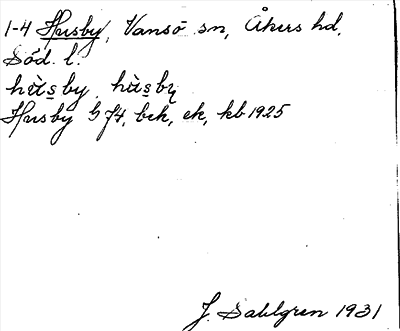 1-4 Husby, Vansö sn, Åkers hd,
Söd. l.
hùs̱by, hùs̱bɥ
Husby G J4, bek, ek, kb 1925
J. Sahlgren 1931